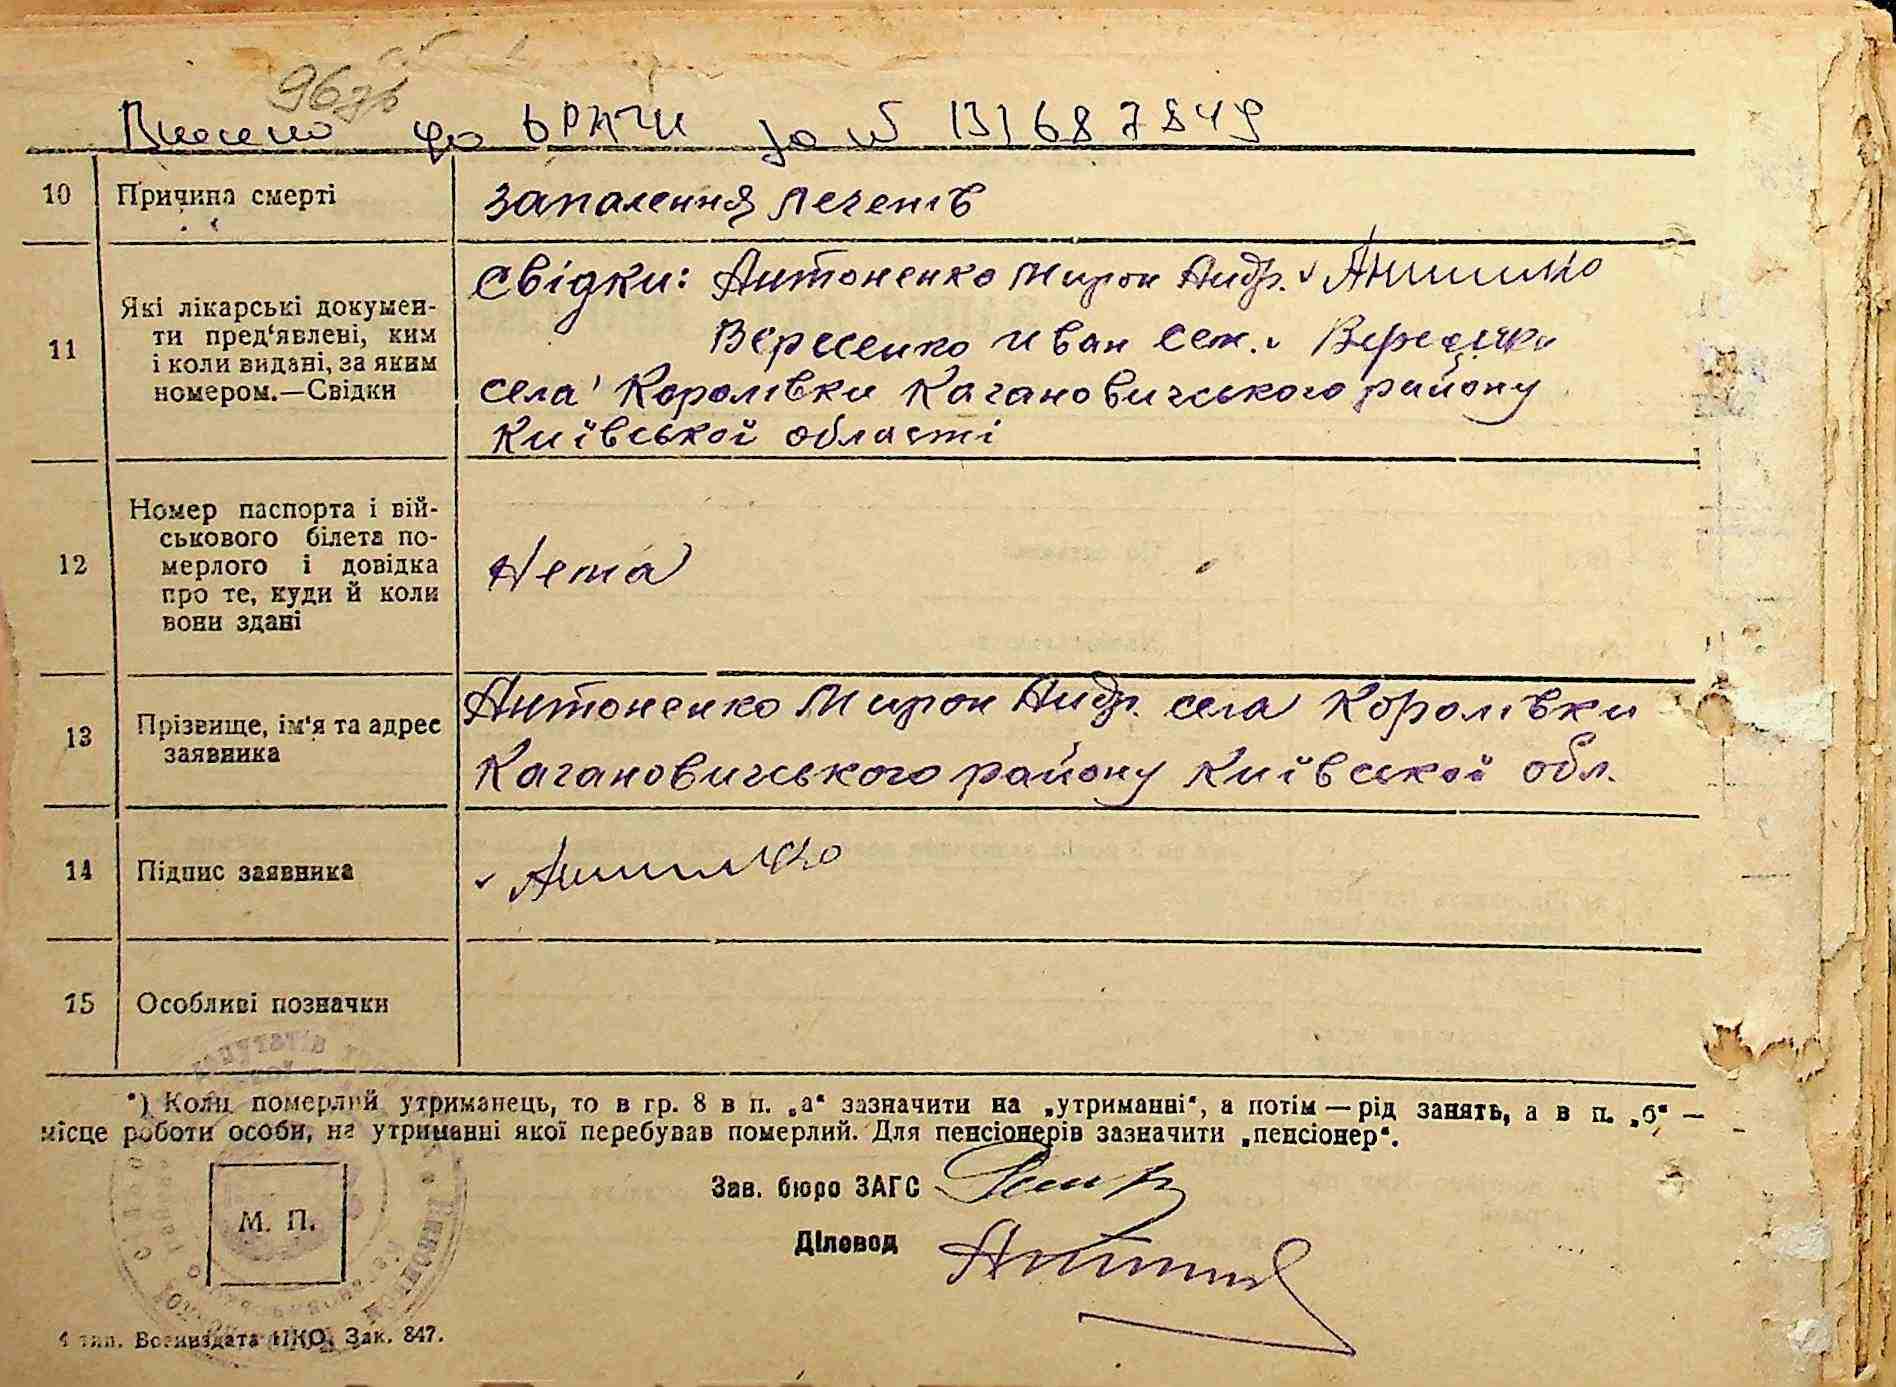 96зв
Внесено до ДРАЦС за № 131687849
10 Причина смерті запалення леченів
11 Які лікарські документи пред'явлені, ким і коли видані, за яким номером.—Свідки
Свідки: Антоненко Мирон Андр.
Вересенко Иван Сем.
села Королівки Кагановичського району
Київської області
12 Номер паспорта і військового білета померлого і довідка про те, куди й коли вони здані
Нема
13 Прізвище, ім'я та адрес заявника
Антоненко Мирон Андр. села Королівки
Кагановичського району Київської обл.
14 Підпис заявника
15 Особливі позначки
*) Коли померлий утриманець, то в гр. 8 в п. „а“ зазначити на „утриманні“, а потім — рід занять, а в п. „б“ —
місце роботи особи, на утриманні якої перебував померлий. Для пенсіонерів зазначити „пенсіонер“.
Зав. бюро ЗАГС
М. П.
Діловод
4 тип. Воениздата НКО. Зак. 847.